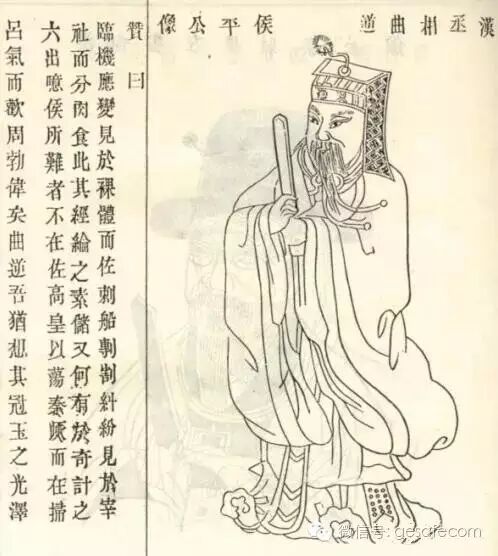 漢丞相曲逆侯平公像
贊曰
臨機應變見於裸體而佐刺船剸割糾紛見於宰
社而分肉食此其經綸之素儲又何有於奇計之
六出噫侯所難者不在佐高皇以蕩秦而在掃
呂氣而周勃偉矣曲逆吾猶想其冠玉之光澤
微信号: qesqfecom